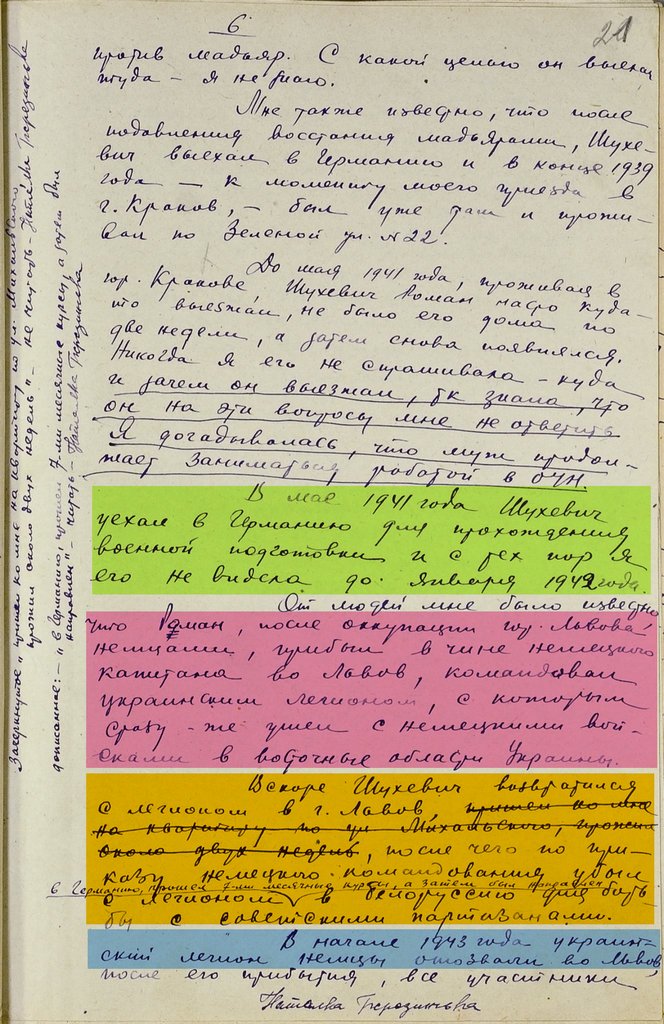 6
21
против мадьяр. С какой целью он выехал
туда – я не знаю.
Мне также известно, что после
подавления восстания мадьярами, Шухе-
вич выехал в Германию и в конце 1939
года — к моменту моего приезда в
г. Краков, – был уже там и прожи-
вал по Зеленой ул. №22.
До мая 1941 года, проживая в
гор. Кракове, Шухевич Роман часто куда-
то выезжал, не было его дома по
две недели, а затем снова появлялся.
Никогда я его не спрашивала – куда
и зачем он выезжал, тк знала, что
он на эти вопросы мне не ответит.
Я догадывалась, что муж продол-
жает заниматься работой в ОУН.
В мае 1941 года Шухевич
уехал в Германию для прохождения
военной подготовки и с тех пор я
его не видела до января 1942 года.
От людей мне было известно,
что Роман, после оккупации гор. Львова
немцами, прибыл в чине немецкого
капитана во Львов, командовал
украинским легионом, с которым
сразу-же ушел с немецкими вой-
сками в восточные области Украины.
Вскоре Шухевич возвратился
с легионом в г. Львов, пришел ко мне
на квартиру по ул. Махальского, прожил
около двух недель, после чего по при-
казу немецкого командования убыл
в Германию, прошел 7-ми месячные курсы, а затем был направлен
с легионом в Белоруссию для борь-
бы с советскими партизанами.
В начале 1943 года украин-
ский легион немцы отозвали во Львов,
после его прибытия, все участники
Наталка Березинська
Зачеркнутое „пришел ко мне на квартиру по ул. Махальского,
прожил около двух недель" – не читать – Наталка Березинська
дописанное: – „в Германию, прошел 7-ми месячные курсы, а затем был
направлен" – читать – Наталка Березинська